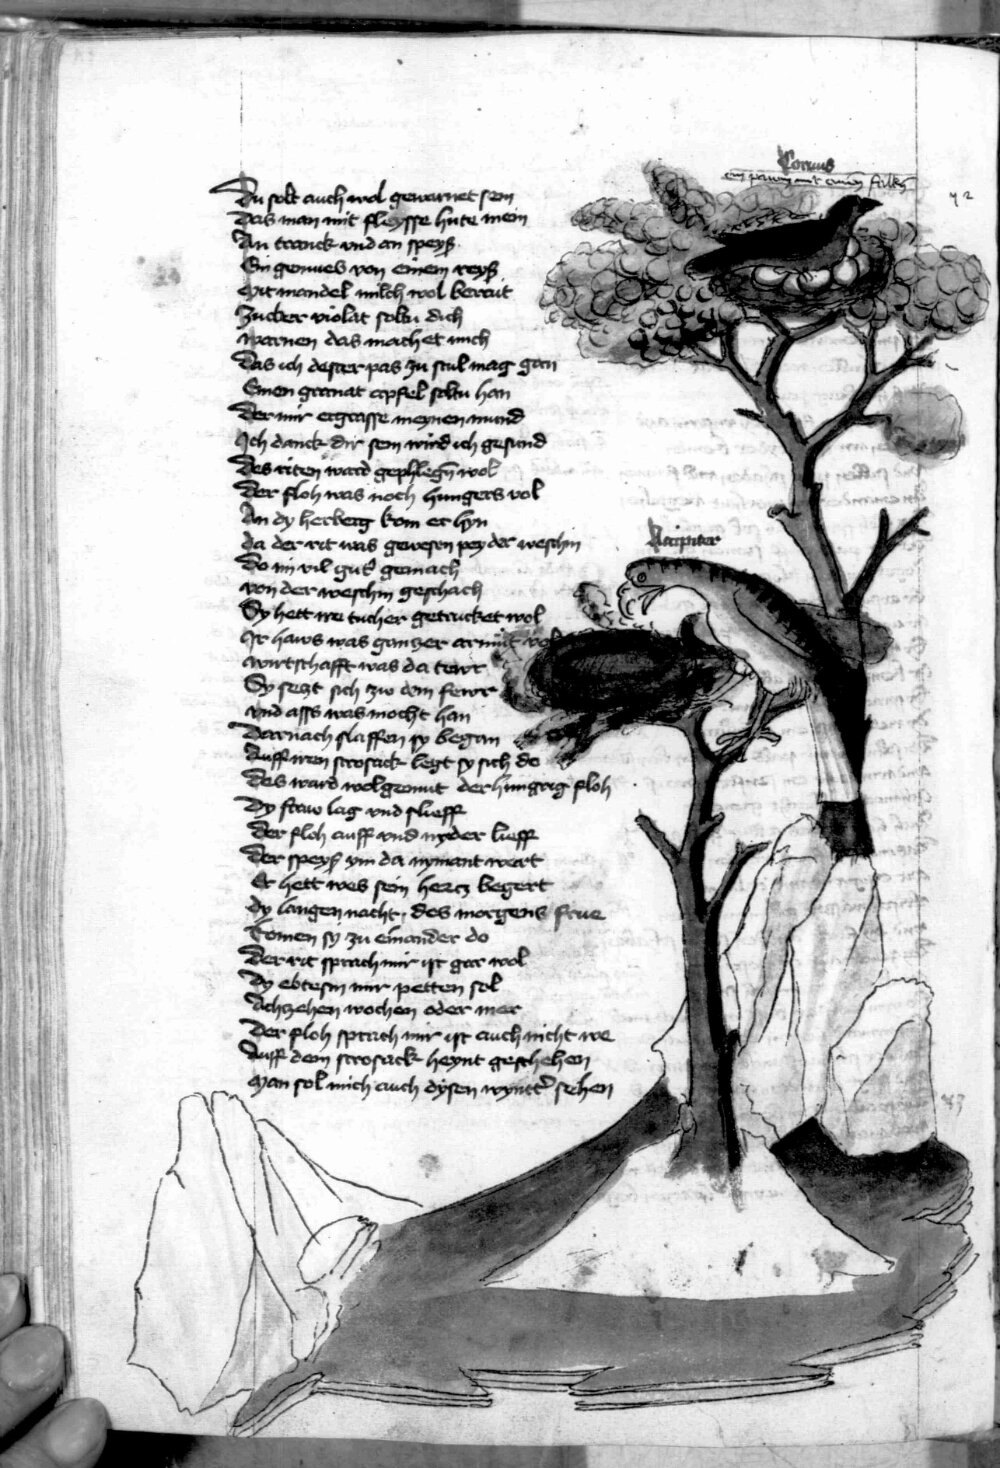 Coruus
ein pawm mit einem falken
42
Du solt auch wol gewarnet sein
Das man mit fleysse hute mein
An tranck vnd an speyß
Ein gemues von einem reyß
Mit mandel milch wol bereit
Zucker violat soltu dich
warnen das machet mich
Das ich dester pas zu stul mag gan
Einen granat apfel soltu han
Der mir ergrasse meynen mund
Ich danck dir sein wird ich gesund
Des riten ward gephlegn wol
Der floh was noch hungers vol
An dy herberg kom er hyn
da der rit was gewesen pey der weschin
Do im vil gut gemach
von der weschin geschach
Sy hett ire tucher getrucket wol
Ir haws was gantzer armut vol
wirtschafft was da tewr
Sy setzt sich zw dem fewr
vnd asss was mocht han
Darnach slaffen sy began
Auff iren strosack legt sy sich do
Des ward wolgemut der hungrig floh
Dy fraw lag vnd slieff
Der floh auff vnd nyder lieff
Der speyß ym da nymant wert
Er hett wes sein hercz begert
dy langen nacht, des morgens frue
komen sy zu einander do
Der rit sprach mir ist gar wol
Dy ebtesin mir petten sol
Achzehen wochen oder mer
Der floh sprach mir ist auch nicht we
Auff dem strosack heynt geschehen
Man sol mich auch dysen wyntter sehen
Accipiter
43